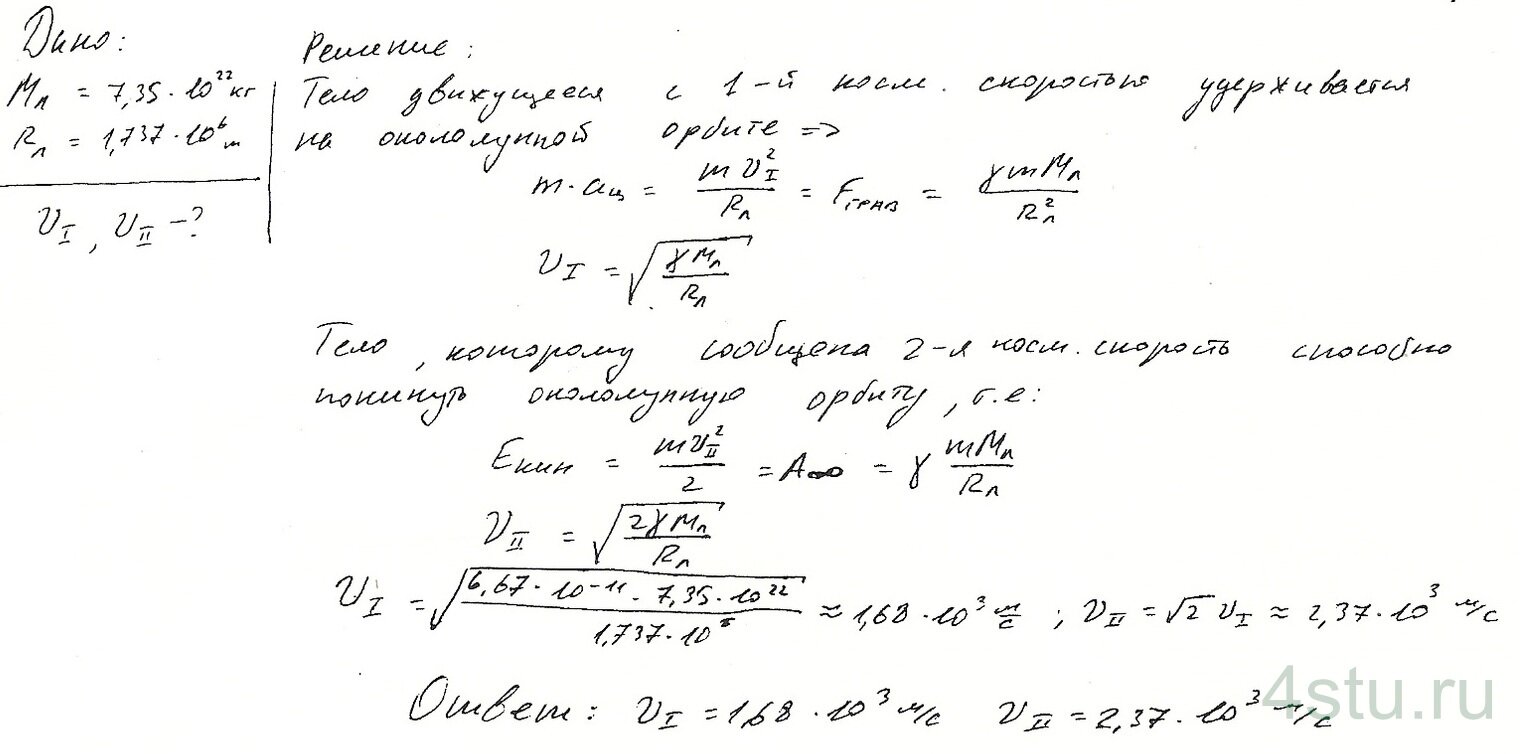 Дано:
M_л = 7,35·10^22 кг
R_л = 1,737·10^6 м
υ_I, υ_II -?
Решение:
Тело движущееся с 1-й косм. скоростью удерживается
на окололунной орбите =>
m·a_ц = mυ_I^2/R_л = F_грав = γmM_л/R_л^2
υ_I = √(γM_л/R_л)
Тело, которому сообщена 2-я косм. скорость способно
покинуть окололунную орбиту, т.е:
E_кин = mυ_II^2/2 = A_∞ = γ mM_л/R_л
υ_II = √(2γM_л/R_л)
υ_I = √(6,67·10^-11·7,35·10^22/1,737·10^6) ≈ 1,68·10^3 м/с ; υ_II = √2 υ_I ≈ 2,37·10^3 м/с
Ответ: υ_I = 1,68·10^3 м/с υ_II = 2,37·10^3 м/с
4stu.ru